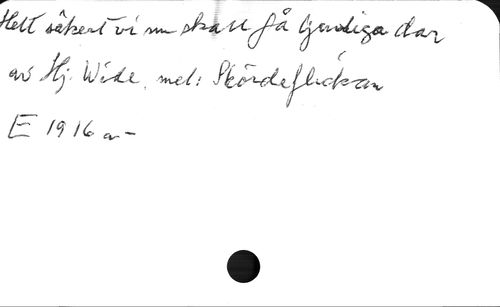 Helt säkert vi nu skall få ljuvliga dar
av Hj. Wide. mel: Skördeflickan
E 1916 a-